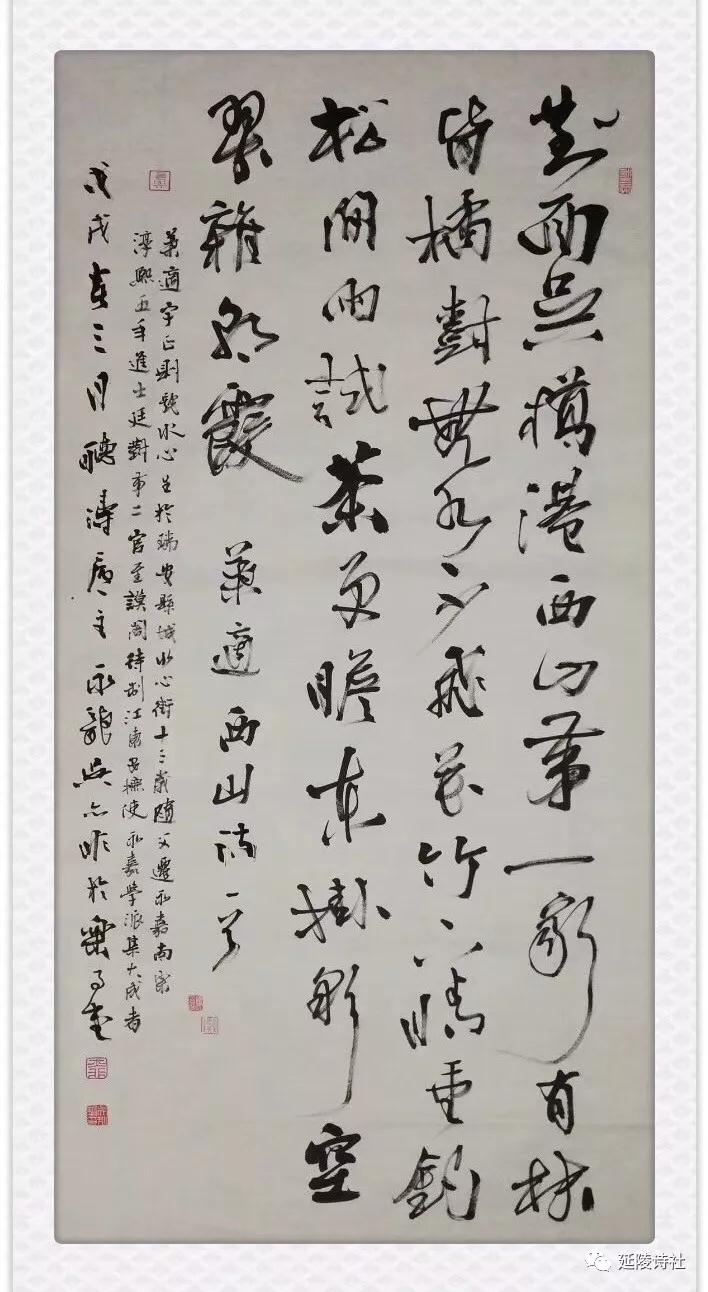 對面吴橋港西山第一家有林
皆橘對無水不飛花竹下晴垂釣
松間雨試茶更瞻東掛彩空
翠雜朝霞 葉適西山詩一首
葉適字正则號水心生於瑞安縣城水心街十三歲隨父遷永嘉南宋
淳熙五年進士廷對第二官至謨閣待制江東安撫使永嘉學派集大成者
戊戌春三月聽濤主永龍吴於樂堂
延陵诗社